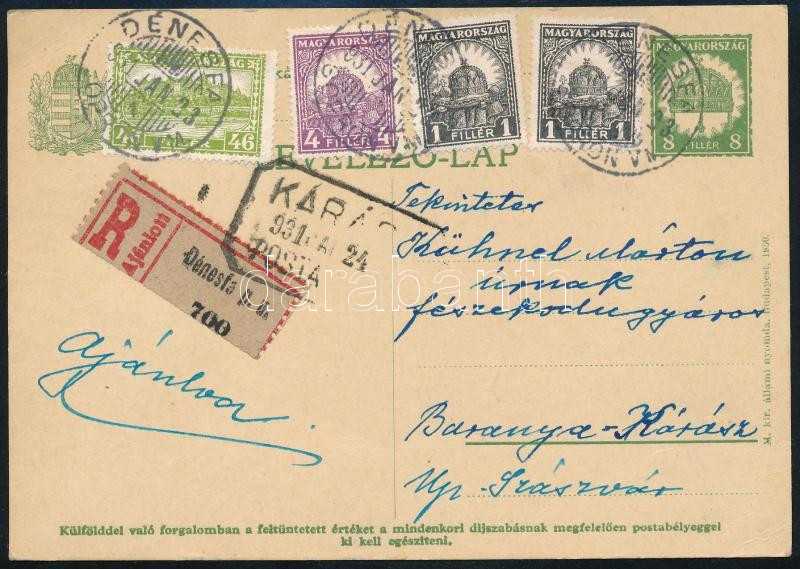 DÉNESFA
931 JAN 23
MAGYARORSZÁG
46 FILLÉR 46
MAGYARORSZÁG
4 FILLÉR 4
MAGYARORSZÁG
1 FILLÉR 1
MAGYARORSZÁG
1 FILLÉR 1
MAGYARORSZÁG
8 FILLÉR 8
LEVELEZŐ-LAP
KARÁS
931 JAN 24
POSTA
R
Ajánlott
Dénesfa
700
darabanth.com
Tekintetes
Kühnel Márton
úrnak
fészekodugyáros
Ajánlva
Baranya-Kárász
Up. Szászvár
M. kir. állami nyomda, Budapest, 1930.
Külfölddel való forgalomban a feltüntetett értéket a mindenkori dijszabásnak megfelelően postabélyeggel
ki kell egésziteni.